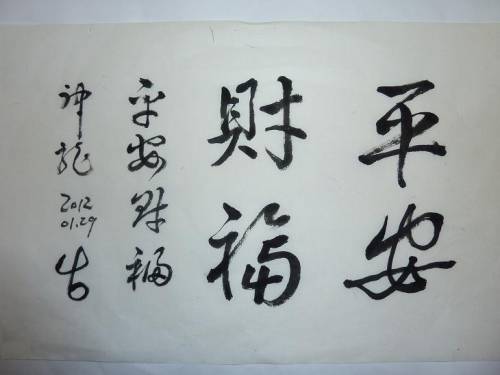 平安
財福
平安财福
神龍
2012
01.29